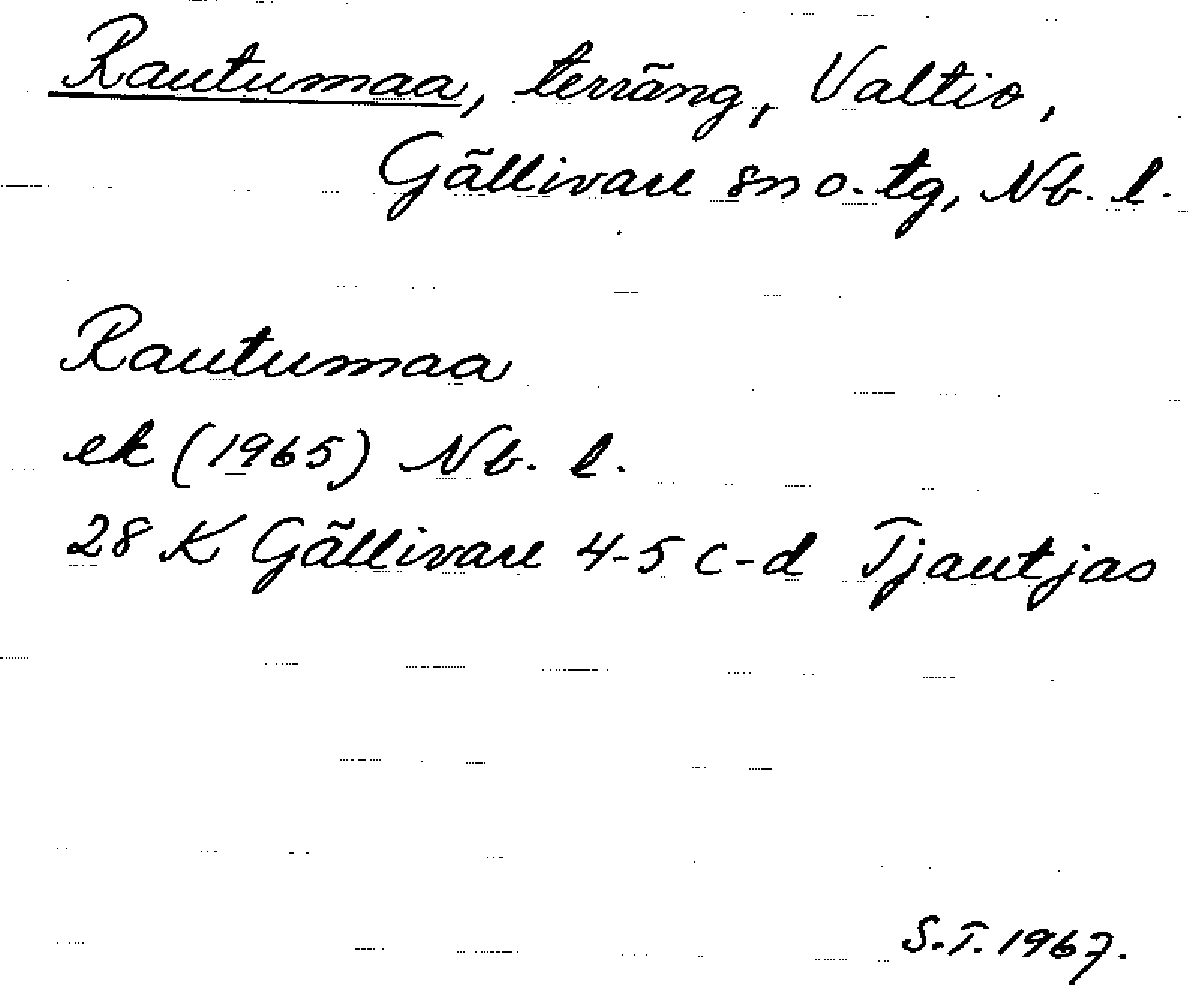 Rautumaa, terräng, Valtio,
Gällivare sn o. tg, Nb. l.
Rautumaa
ek (1965) Nb. l.
28 K Gällivare 4-5 c-d Tjautjas
S.T. 1967.